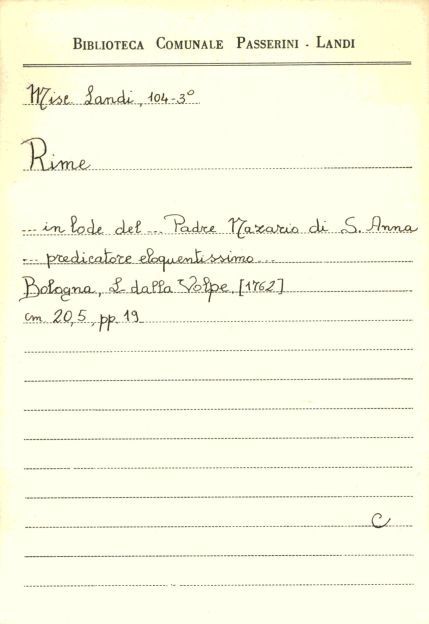 BIBLIOTECA COMUNALE PASSERINI - LANDI
Misc. Landi, 104-3°
Rime
... in lode del ... Padre Nazario di S. Anna
... predicatore eloquentissimo ...
Bologna, L. dalla Volpe, [1762]
cm 20,5, pp. 19
C